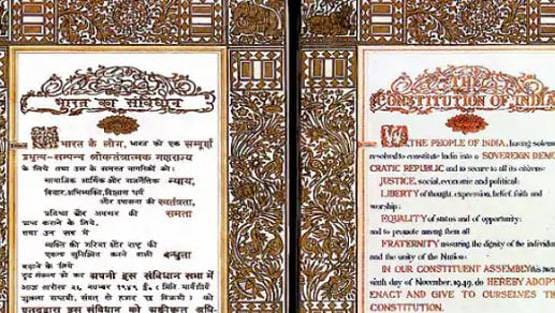 भारत का संविधान
भारत के लोग, भारत को एक सम्पूर्ण
प्रभुत्व-सम्पन्न लोकतंत्रात्मक गणराज्य
के लिये तथा उस के समस्त नागरिकों को:
सामाजिक आर्थिक और राजनैतिक न्याय,
विचार,अभिव्यक्ति,विश्वास धर्म
और उपासना की स्वतंत्रता,
प्रतिष्ठा और अवसर की समता
प्राप्त कराने के लिये,
तथा उन सब में
व्यक्ति की गरिमा और राष्ट्र की
एकता सुनिश्चित करने वाली बन्धुता
बढ़ाने के लिये
दृढ़ संकल्प हो कर अपनी इस संविधान सभा में
आज तारीख २६ नवम्बर १९४९ ई० (मिति मार्गशीर्ष
शुक्ला सप्तमी, संवत् दो हजार छः विक्रमी) को
एतद्द्वारा इस संविधान को अंगीकृत, अधि-
THE
CONSTITUTION OF INDIA
WE, THE PEOPLE OF INDIA, having solem
resolved to constitute India into a SOVEREIGN DEM
CRATIC REPUBLIC and to secure to all its citizens:
JUSTICE, social, economic and political;
LIBERTY of thought, expression, belief, faith and
worship;
EQUALITY of status and of opportunity;
and to promote among them all
FRATERNITY assuring the dignity of the individual
and the unity of the Nation;
IN OUR CONSTITUENT ASSEMBLY this twen
sixth day of November, 1949, do HEREBY ADOPT
ENACT AND GIVE TO OURSELVES TH
CONSTITUTION.